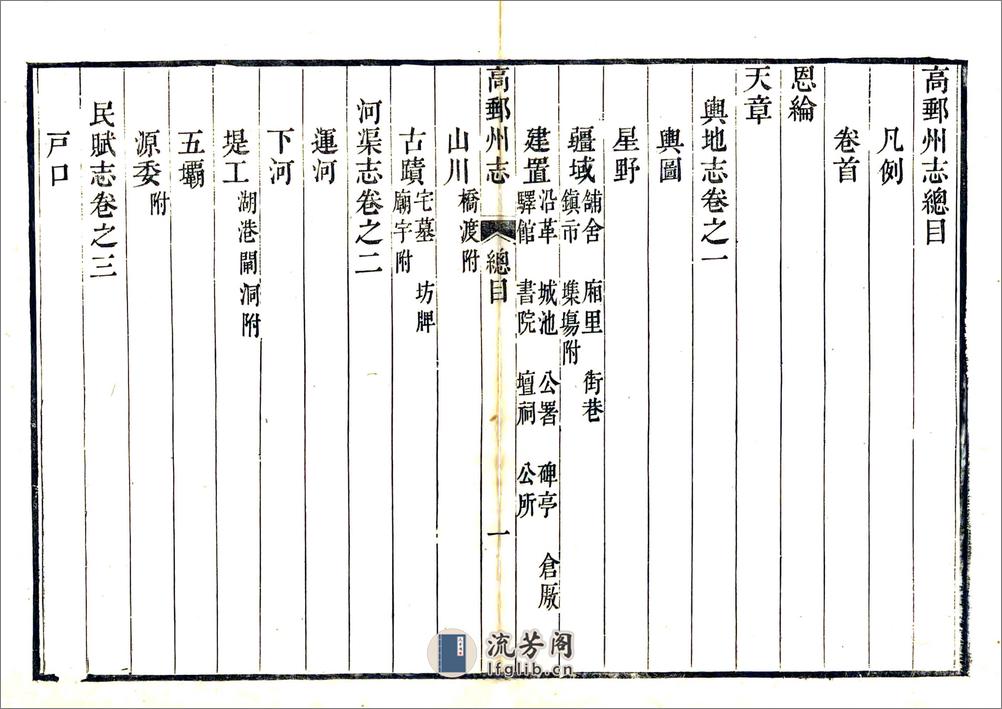 高郵州志總目
凡例
卷首
恩綸
天章
輿地志卷之一
輿圖
星野
疆域 舖舍 廂里 街巷
鎮市 㙡塲附
建置 沿革 城池 公署 碑亭 倉厫
驛館 書院 壇祠 公所
高郵州志 總目 一
山川 橋渡附
古蹟 宅墓 坊牌
廟宇附
河渠志卷之二
運河
下河
堤工 湖港閘洞附
五壩
源委附
民賦志卷之三
戸口
流芳阁
lfglib.cn